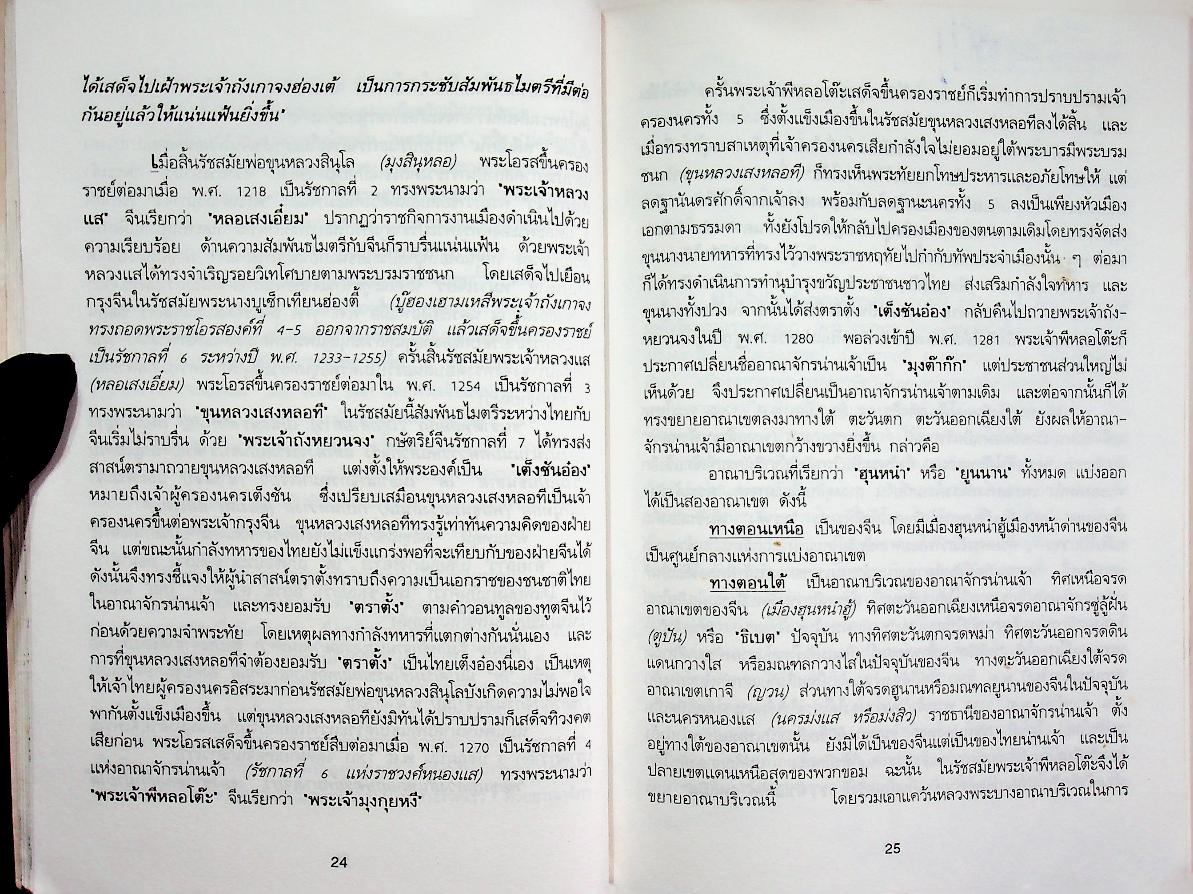 ได้เสด็จไปเฝ้าพระเจ้าถังเกาจงฮ่องเต้ เป็นการกระชับสัมพันธไมตรีที่มีต่อ
กันอยู่แล้วให้แน่นแฟ้นยิ่งขึ้น"
เมื่อสิ้นรัชสมัยพ่อขุนหลวงสินุโล (มุงสินุหลอ) พระโอรสขึ้นครอง
ราชย์ต่อมาเมื่อ พ.ศ. 1218 เป็นรัชกาลที่ 2 ทรงพระนามว่า "พระเจ้าหลวง
แส" จีนเรียกว่า "หลอเสงเอี๋ยม" ปรากฏว่าราชกิจการงานเมืองดำเนินไปด้วย
ความเรียบร้อย ด้านความสัมพันธไมตรีกับจีนก็ราบรื่นแน่นแฟ้น ด้วยพระเจ้า
หลวงแสได้ทรงจำเริญรอยวิเทโศบายตามพระบรมราชชนก โดยเสด็จไปเยือน
กรุงจีนในรัชสมัยพระนางบูเช็กเทียนฮ่องตี้ (บู๊ฮองเฮามเหสีพระเจ้าถังเกาจง
ทรงถอดพระราชโอรสองค์ที่ 4-5 ออกจากราชสมบัติ แล้วเสด็จขึ้นครองราชย์
เป็นรัชกาลที่ 6 ระหว่างปี พ.ศ. 1233-1255) ครั้นสิ้นรัชสมัยพระเจ้าหลวงแส
(หลอเสงเอี๋ยม) พระโอรสขึ้นครองราชย์ต่อมาใน พ.ศ. 1254 เป็นรัชกาลที่ 3
ทรงพระนามว่า "ขุนหลวงเสงหลอที" ในรัชสมัยนี้สัมพันธไมตรีระหว่างไทยกับ
จีนเริ่มไม่ราบรื่น ด้วย "พระเจ้าถังหยวนจง" กษัตริย์จีนรัชกาลที่ 7 ได้ทรงส่ง
สาสน์ตรามาถวายขุนหลวงเสงหลอที แต่งตั้งให้พระองค์เป็น "เต็งซันอ๋อง"
หมายถึงเจ้าผู้ครองนครเต็งซัน ซึ่งเปรียบเสมือนขุนหลวงเสงหลอทีเป็นเจ้า
ครองนครขึ้นต่อพระเจ้ากรุงจีน ขุนหลวงเสงหลอทีทรงรู้เท่าทันความคิดของฝ่าย
จีน แต่ขณะนั้นกำลังทหารของไทยยังไม่แข็งแกร่งพอที่จะเทียบกับของฝ่ายจีนได้
ดังนั้นจึงทรงชี้แจงให้ผู้นำสาสน์ตราตั้งทราบถึงความเป็นเอกราชของชนชาติไทย
ในอาณาจักรน่านเจ้า และทรงยอมรับ "ตราตั้ง" ตามคำวอนทูลของทูตจีนไว้
ก่อนด้วยความจำพระทัย โดยเหตุผลทางกำลังทหารที่แตกต่างกันนั่นเอง และ
การที่ขุนหลวงเสงหลอทีจำต้องยอมรับ "ตราตั้ง" เป็นไทยเต็งอ๋องนี่เอง เป็นเหตุ
ให้เจ้าไทยผู้ครองนครอิสระมาก่อนรัชสมัยพ่อขุนหลวงสินุโลบังเกิดความไม่พอใจ
พากันตั้งแข็งเมืองขึ้น แต่ขุนหลวงเสงหลอทียังมิทันได้ปราบปรามก็เสด็จทิวงคต
เสียก่อน พระโอรสเสด็จขึ้นครองราชย์สืบต่อมาเมื่อ พ.ศ. 1270 เป็นรัชกาลที่ 4
แห่งอาณาจักรน่านเจ้า (รัชกาลที่ 6 แห่งราชวงศ์หนองแส) ทรงพระนามว่า
"พระเจ้าพีหลอโต๊ะ" จีนเรียกว่า "พระเจ้ามุงกุยหงี"
24
ครั้นพระเจ้าพีหลอโต๊ะเสด็จขึ้นครองราชย์ก็เริ่มทำการปราบปรามเจ้า
ครองนครทั้ง 5 ซึ่งตั้งแข็งเมืองขึ้นในรัชสมัยขุนหลวงเสงหลอทีลงได้สิ้น และ
เมื่อทรงทราบสาเหตุที่เจ้าครองนครเสียกำลังใจไม่ยอมอยู่ใต้พระบารมีพระบรม
ชนก (ขุนหลวงเสงหลอที) ก็ทรงเห็นพระทัยยกโทษประหารและอภัยโทษให้ แต่
ลดฐานันดรศักดิ์จากเจ้าลง พร้อมกับลดฐานะนครทั้ง 5 ลงเป็นเพียงหัวเมือง
เอกตามธรรมดา ทั้งยังโปรดให้กลับไปครองเมืองของตนตามเดิมโดยทรงจัดส่ง
ขุนนางนายทหารที่ทรงไว้วางพระราชหฤทัยไปกำกับทัพประจำเมืองนั้น ๆ ต่อมา
ก็ได้ทรงดำเนินการทำนุบำรุงขวัญประชาชนชาวไทย ส่งเสริมกำลังใจทหาร และ
ขุนนางทั้งปวง จากนั้นได้ส่งตราตั้ง "เต็งซันอ๋อง" กลับคืนไปถวายพระเจ้าถัง-
หยวนจงในปี พ.ศ. 1280 พอล่วงเข้าปี พ.ศ. 1281 พระเจ้าพีหลอโต๊ะก็
ประกาศเปลี่ยนชื่ออาณาจักรน่านเจ้าเป็น "มุงต๊าก๊ก" แต่ประชาชนส่วนใหญ่ไม่
เห็นด้วย จึงประกาศเปลี่ยนเป็นอาณาจักรน่านเจ้าตามเดิม และต่อจากนั้นก็ได้
ทรงขยายอาณาเขตลงมาทางใต้ ตะวันตก ตะวันออกเฉียงใต้ ยังผลให้อาณา-
จักรน่านเจ้ามีอาณาเขตกว้างขวางยิ่งขึ้น กล่าวคือ
อาณาบริเวณที่เรียกว่า "ฮุนหนำ" หรือ "ยูนนาน" ทั้งหมด แบ่งออก
ได้เป็นสองอาณาเขต ดังนี้
ทางตอนเหนือ เป็นของจีน โดยมีเมืองฮุนหนำฮู้เมืองหน้าด่านของจีน
เป็นศูนย์กลางแห่งการแบ่งอาณาเขต
ทางตอนใต้ เป็นอาณาบริเวณของอาณาจักรน่านเจ้า ทิศเหนือจรด
อาณาเขตของจีน (เมืองฮุนหนำฮู้) ทิศตะวันออกเฉียงเหนือจรดอาณาจักรซู่ลู้ฝั่น
(ตูปัน) หรือ "ธิเบต" ปัจจุบัน ทางทิศตะวันตกจรดพม่า ทิศตะวันออกจรดดิน
แดนกวางใส หรือมณฑลกวางใสในปัจจุบันของจีน ทางตะวันออกเฉียงใต้จรด
อาณาเขตเกาจี (ญวน) ส่วนทางใต้จรดฮูนานหรือมณฑลยูนานของจีนในปัจจุบัน
และนครหนองแส (นครม่งแส หรือม่งสิว) ราชธานีของอาณาจักรน่านเจ้า ตั้ง
อยู่ทางใต้ของอาณาเขตนั้น ยังมิได้เป็นของจีนแต่เป็นของไทยน่านเจ้า และเป็น
ปลายเขตแดนเหนือสุดของพวกขอม ฉะนั้น ในรัชสมัยพระเจ้าพีหลอโต๊ะจึงได้
ขยายอาณาบริเวณนี้ โดยรวมเอาแคว้นหลวงพระบางอาณาบริเวณในการ
25